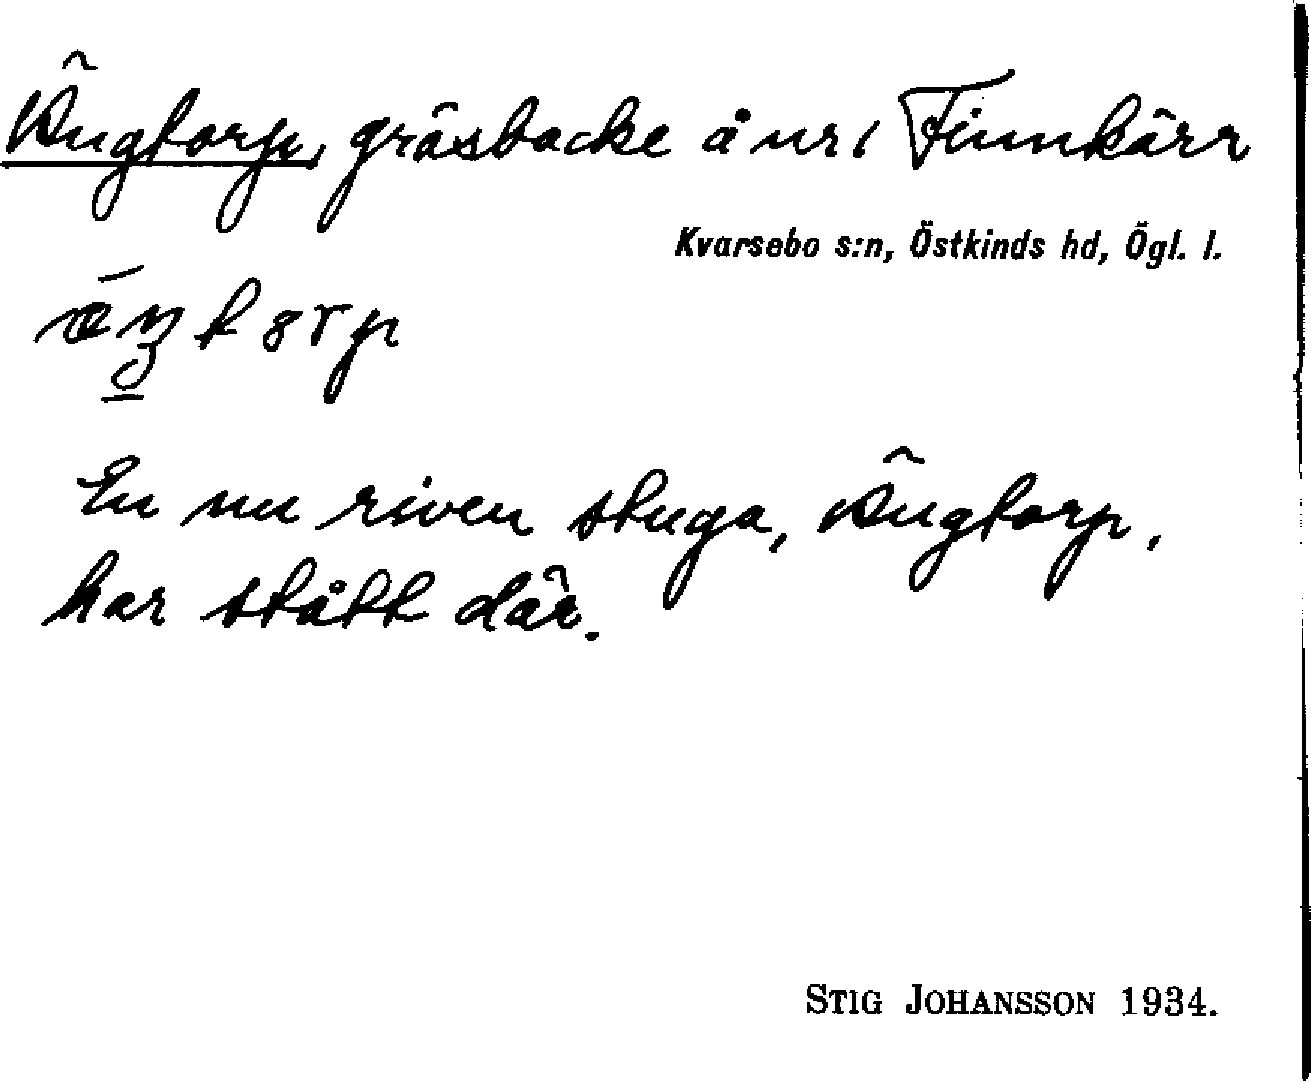 Ängtorp, gräsbacke å nr 1 Finnkärr
Kvarsebo s:n, Östkinds hd, Ögl. l.
En nu riven stuga, Ängtorp,
har stått där.
STIG JOHANSSON 1934.